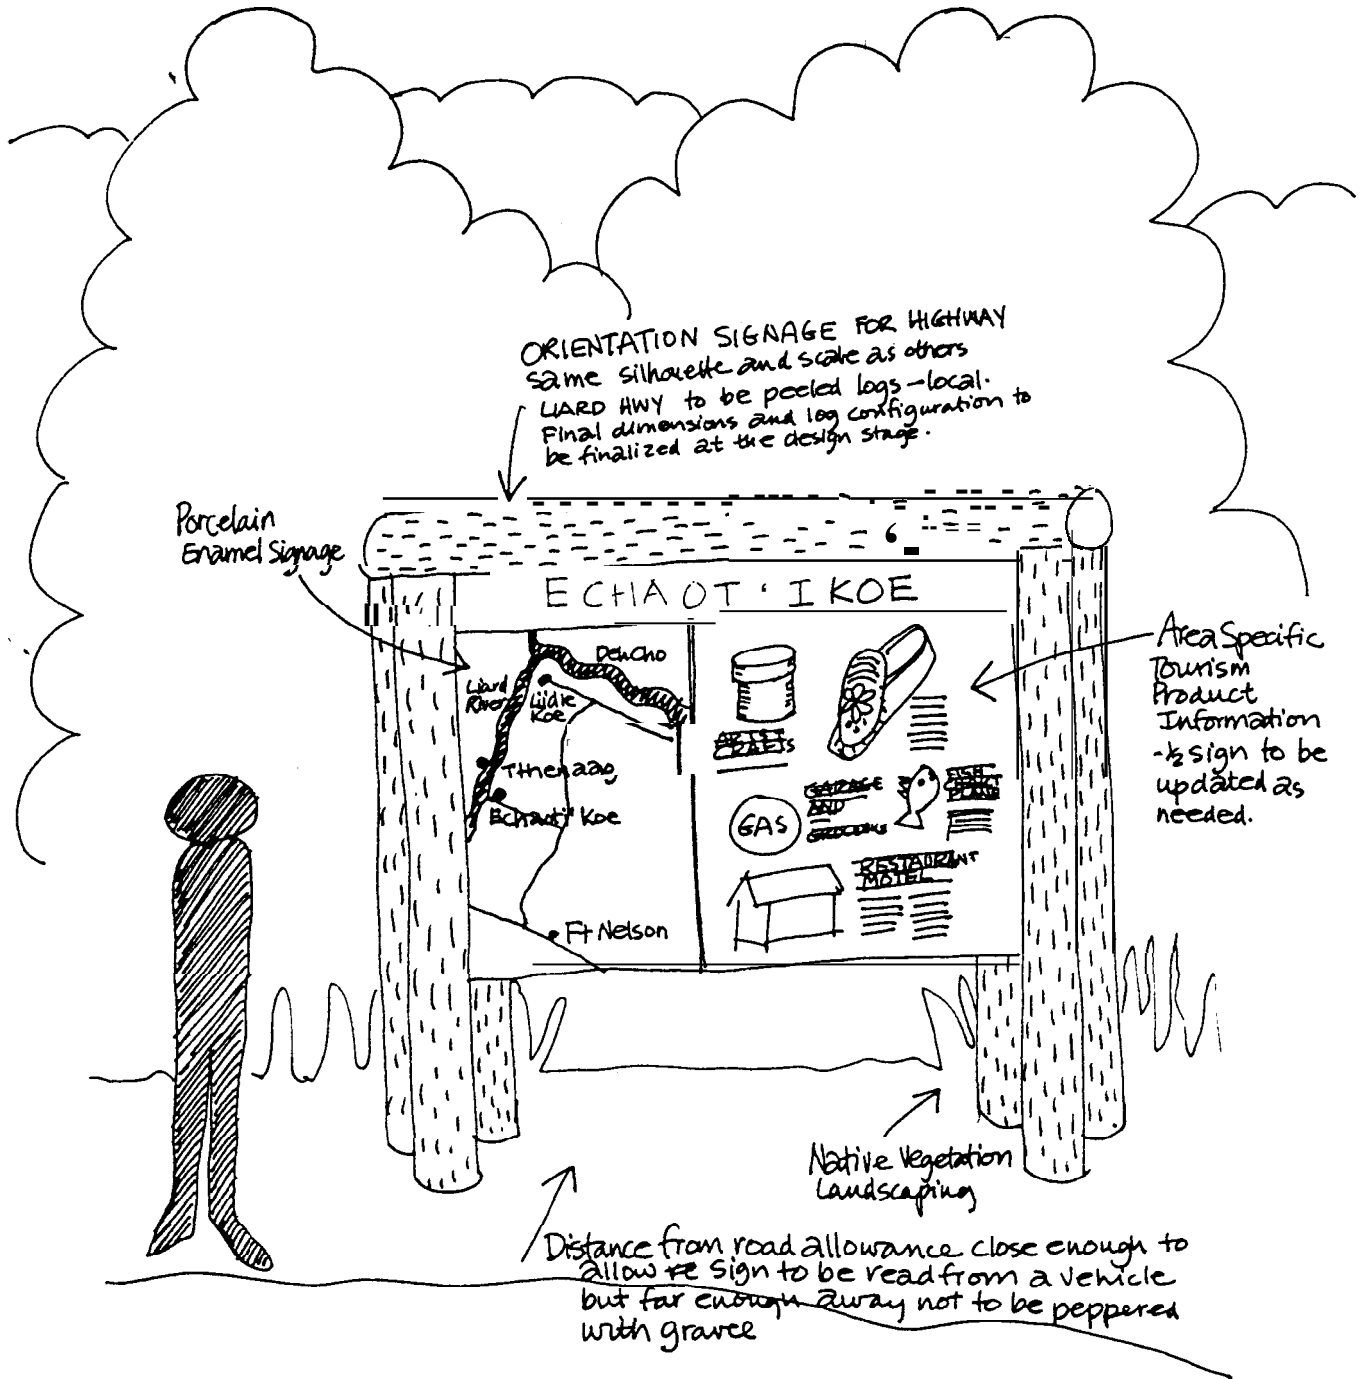 ORIENTATION SIGNAGE FOR HIGHWAY
same silhouette and scale as others
LIARD HWY to be peeled logs - local.
Final dimensions and log configuration to
be finalized at the design stage.
Porcelain
Enamel Signage
ECHAOT'IKOE
DehCho
Liard
River
Liidie
Koe
Tthenaago
Echaoti' Koe
Ft Nelson
ARTIST
CRAFTS
GARAGE
AND
GROCERIES
GAS
FISH
RESTAURANT
MOTEL
Area Specific
Tourism
Product
Information
-½ sign to be
updated as
needed.
Native Vegetation
Landscaping
Distance from road allowance close enough to
allow sign to be read from a vehicle
but far enough away not to be peppered
with gravel